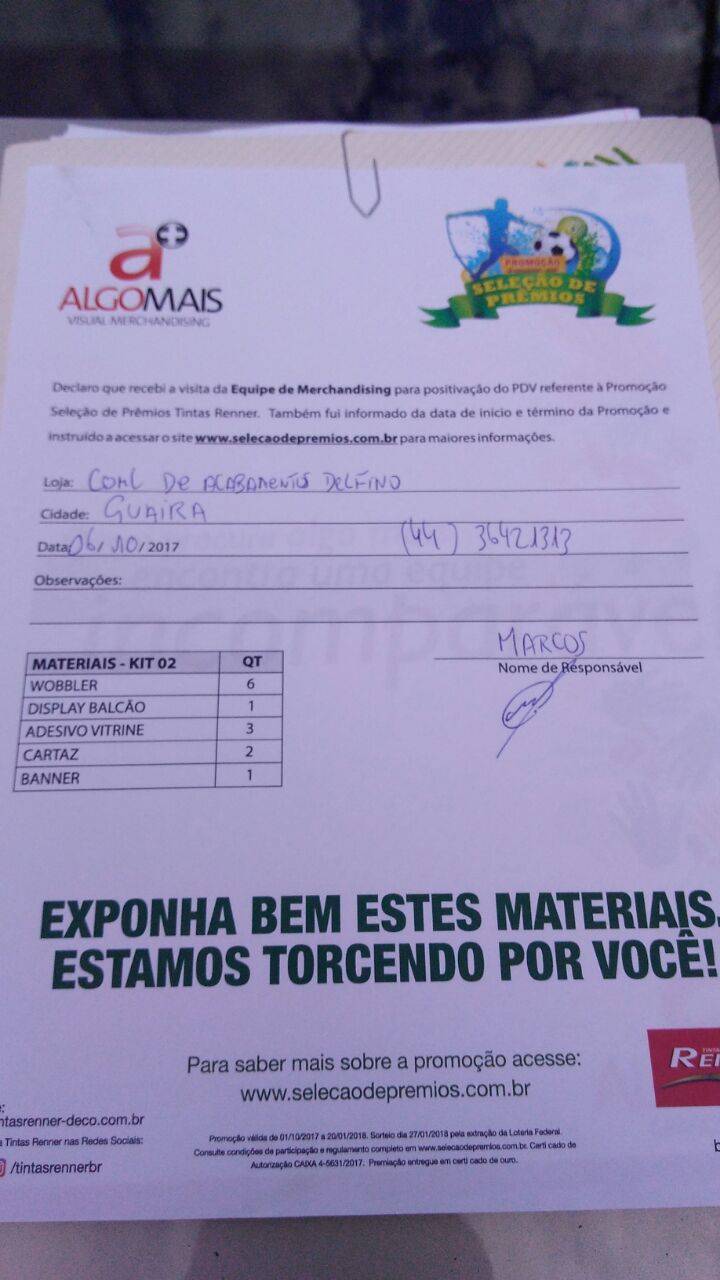 a+
ALGOMAIS
VISUAL MERCHANDISING
PROMOÇÃO
SELEÇÃO DE
PRÊMIOS
Declaro que recebi a visita da Equipe de Merchandising para positivação do PDV referente à Promoção
Seleção de Prêmios Tintas Renner. Também fui informado da data de inicio e término da Promoção e
instruído a acessar o site www.selecaodepremios.com.br para maiores informações.
Loja: COML DE ACABAMENTOS DELFINO
Cidade: GUAIRA
Data: 06/10/2017 (44) 36421313
Observações:
MARCOS
Nome de Responsável
MATERIAIS - KIT 02 QT
WOBBLER 6
DISPLAY BALCÃO 1
ADESIVO VITRINE 3
CARTAZ 2
BANNER 1
EXPONHA BEM ESTES MATERIAIS.
ESTAMOS TORCENDO POR VOCÊ!
Para saber mais sobre a promoção acesse:
www.selecaodepremios.com.br
ntasrenner-deco.com.br
a Tintas Renner nas Redes Sociais:
/tintasrennerbr
Promoção válida de 01/10/2017 a 20/01/2018. Sorteio dia 27/01/2018 pela extração da Loteria Federal.
Consulte condições de participação e regulamento completo em www.selecaodepremios.com.br. Certi cado de
Autorização CAIXA 4-5631/2017. Premiação entregue em certi cado de ouro.